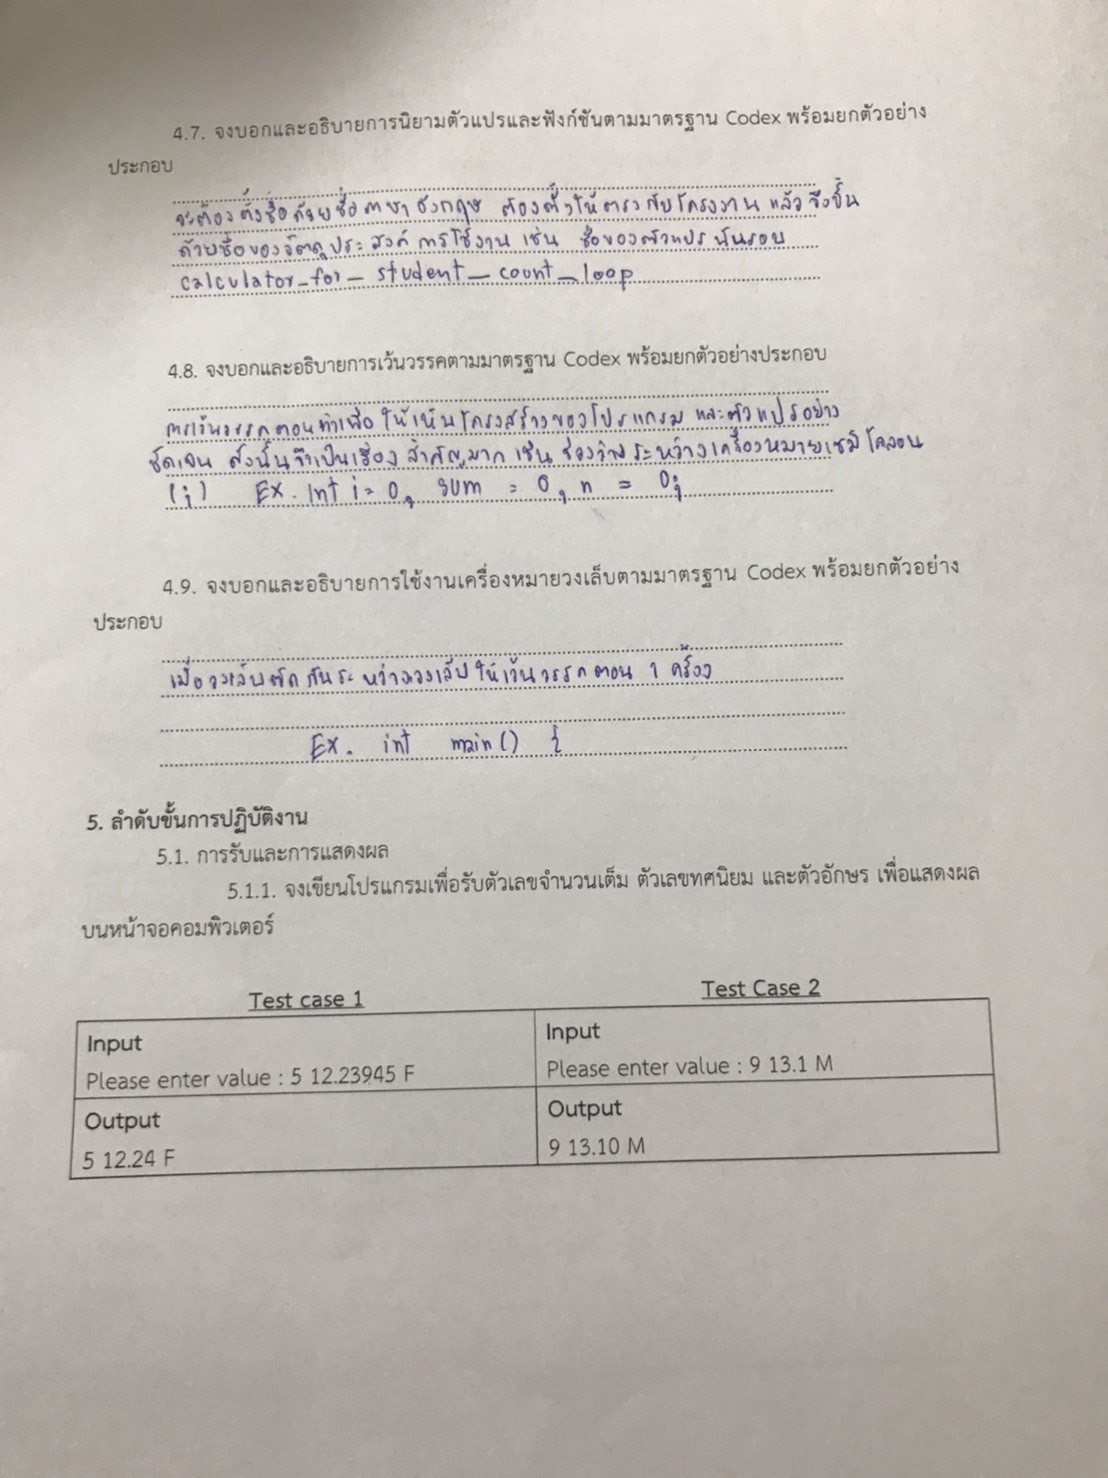 4.7. จงบอกและอธิบายการนิยามตัวแปรและฟังก์ชันตามมาตรฐาน Codex พร้อมยกตัวอย่าง
ประกอบ
จะต้องตั้งชื่อด้วยชื่อภาษาอังกฤษ ต้องตั้งให้ตรงกับโครงงาน แล้วจึงขึ้น
ด้วยชื่อของวัตถุประสงค์ การใช้งาน เช่น ชื่อของตัวแปรนับรอบ
calculator_for_student_count_loop
4.8. จงบอกและอธิบายการเว้นวรรคตามมาตรฐาน Codex พร้อมยกตัวอย่างประกอบ
การเว้นวรรคตอนทำเพื่อให้เห็นโครงสร้างของโปรแกรม และตัวแปรอย่าง
ชัดเจน ดังนั้นจึงเป็นเรื่องสำคัญมาก เช่น ช่องว่างระหว่างเครื่องหมายเซมิโคลอน
(;) EX. int i = 0, sum = 0, n = 0;
4.9. จงบอกและอธิบายการใช้งานเครื่องหมายวงเล็บตามมาตรฐาน Codex พร้อมยกตัวอย่าง
ประกอบ
เมื่อวงเล็บติดกันระหว่างวงเล็บให้เว้นวรรคตอน 1 ครั้ง
Ex. int main() {
5. ลำดับขั้นการปฏิบัติงาน
5.1. การรับและการแสดงผล
5.1.1. จงเขียนโปรแกรมเพื่อรับตัวเลขจำนวนเต็ม ตัวเลขทศนิยม และตัวอักษร เพื่อแสดงผล
บนหน้าจอคอมพิวเตอร์
Test case 1
Test Case 2
Input
Please enter value : 5 12.23945 F
Input
Please enter value : 9 13.1 M
Output
5 12.24 F
Output
9 13.10 M